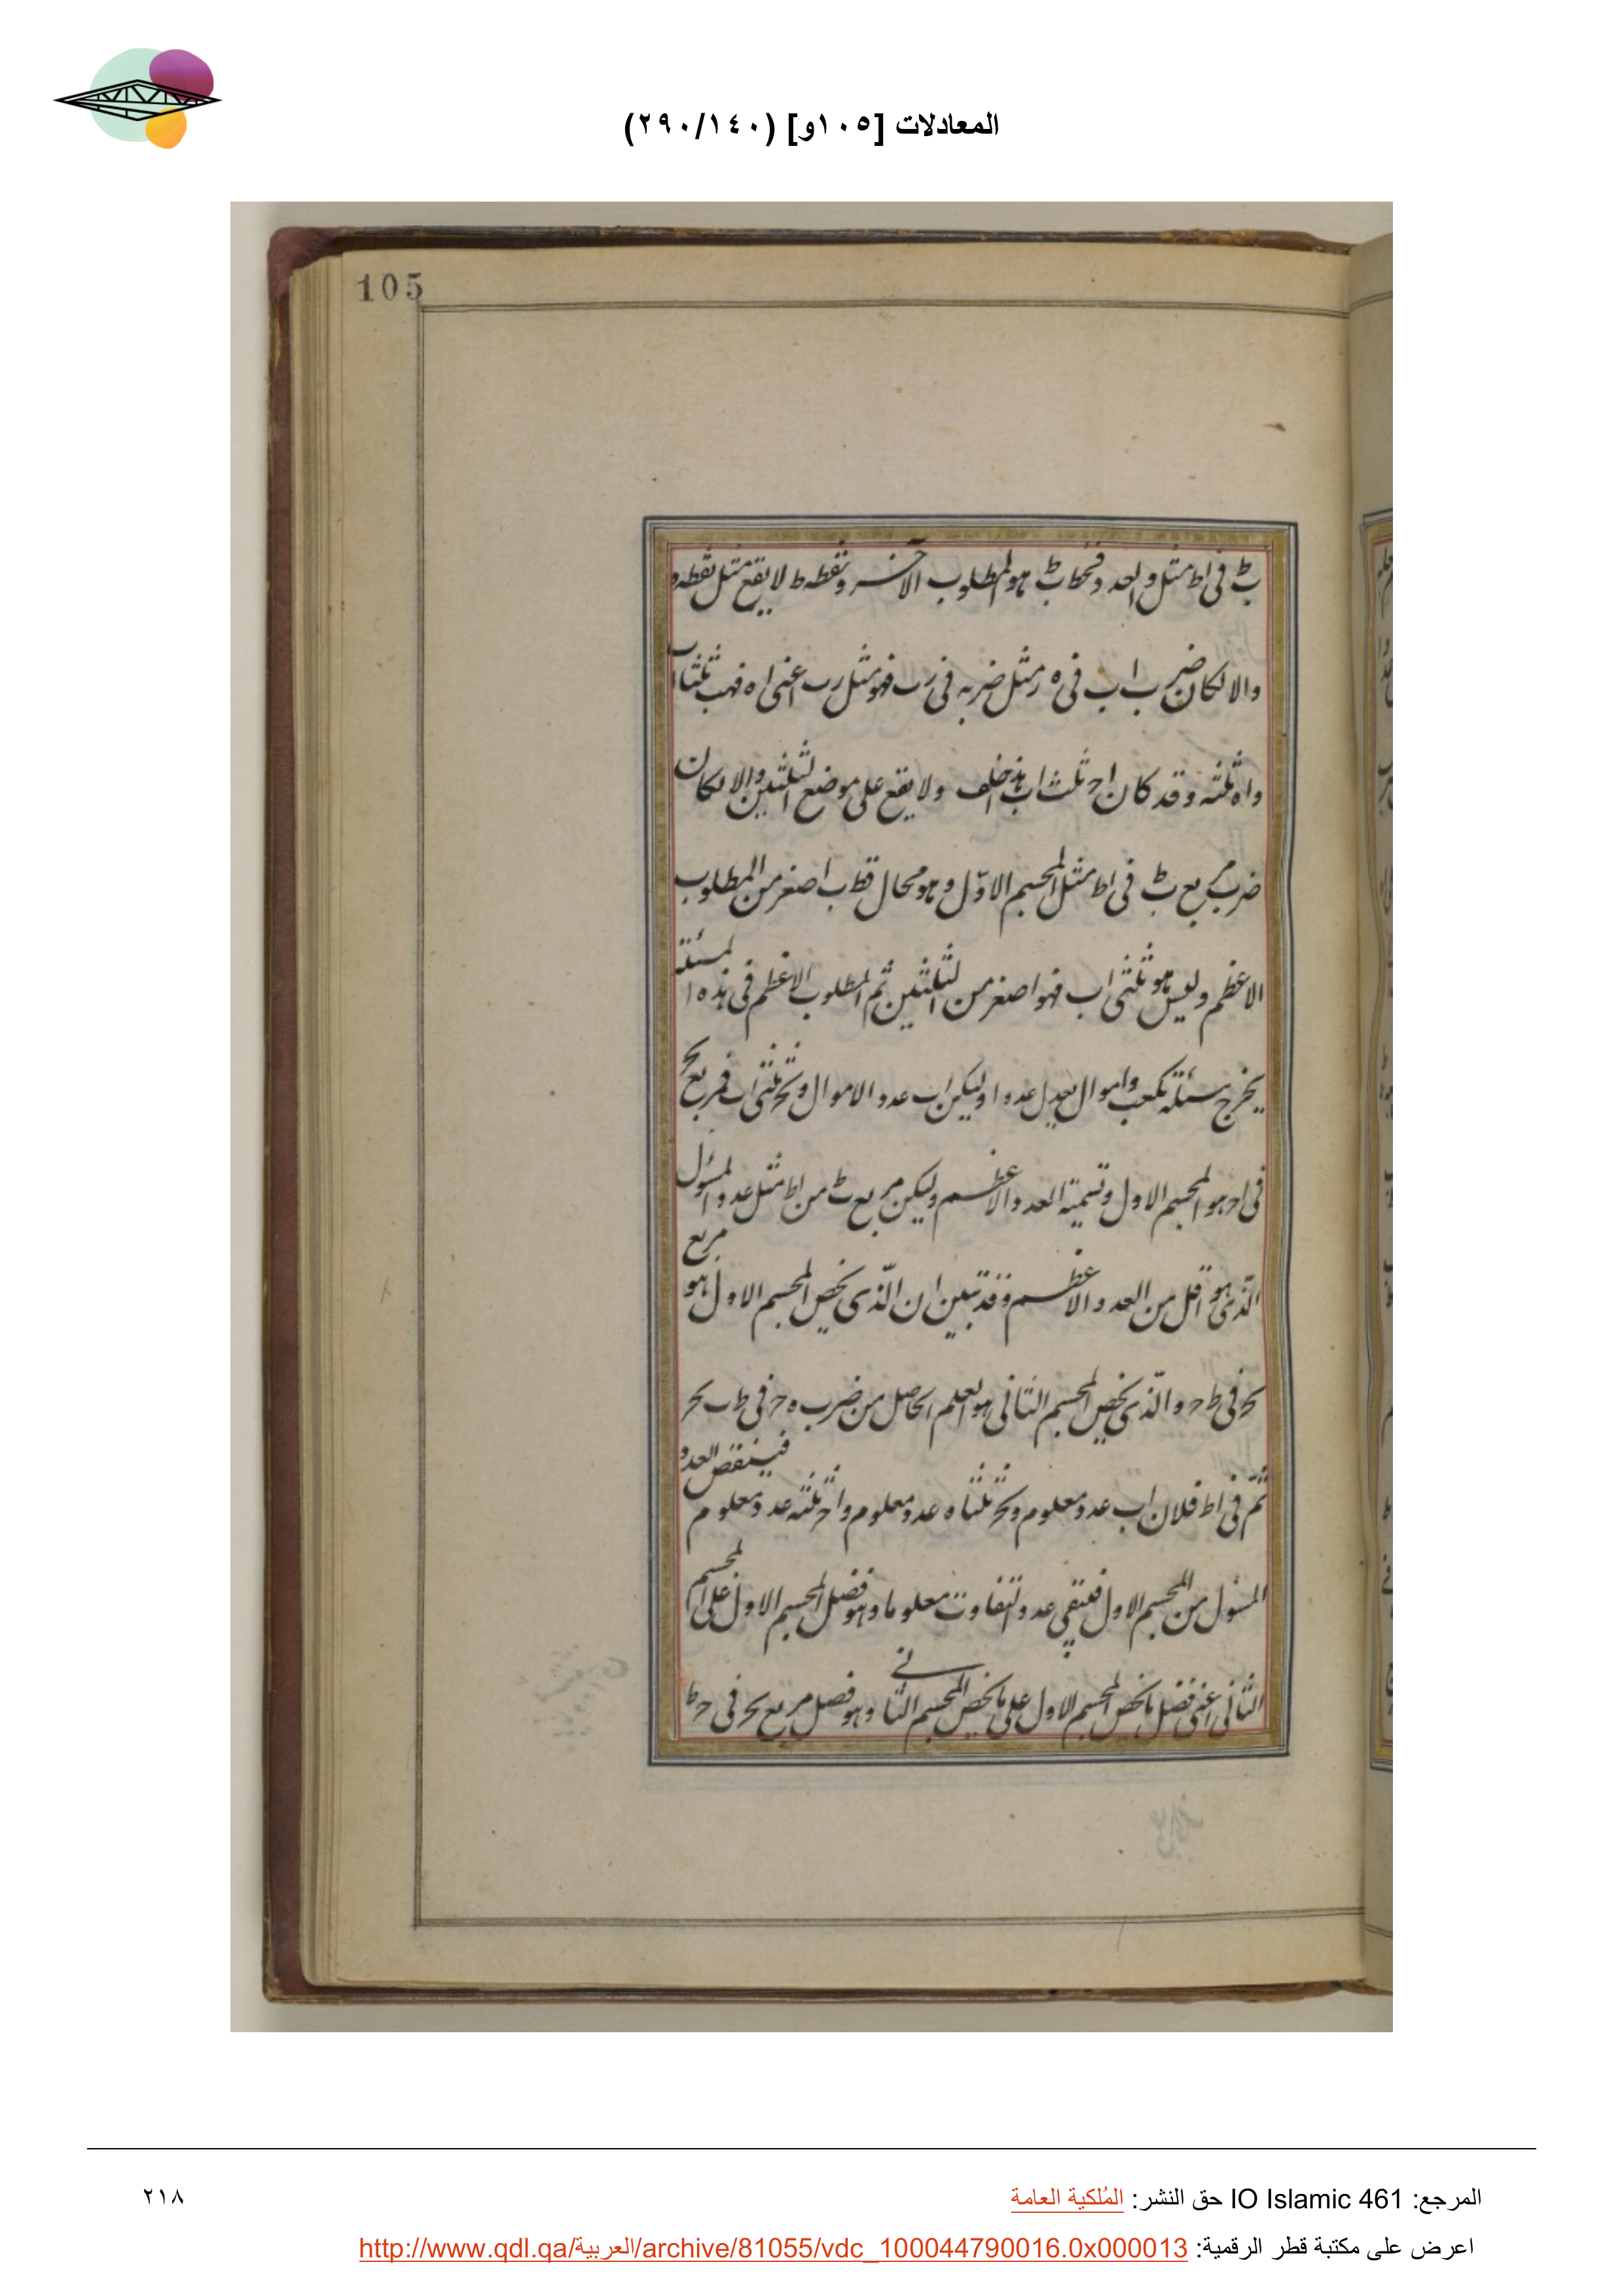 المعادلات [١٠٥و] (٢٩٠/١٤٠)
105
ٮط فى اط مثل واحد وفخط اٮط هو المطلوب الآخر ونقطه ط لا يقع مثل نقطه ه
والا لكان ضرب اب فى ه ر مثل ضربه فى رب فهو مثل رب اعنى اه فهب ثلثا اب
واه ثلثه وقد كان اح ثلث اب هذا خلف ولا يقع على موضع الثلثين والا لكان
ضرب مربع ب ط فى اط مثل المجسم الاوّل وهو محال فط ب اصغر من المطلوب
الاعظم وليس هو ثلثى اب فهو اصغر من الثلثين ثم المطلوب الاعظم فى هذه المسئلة
يخرج بمسئلة كعب واموال يعدل عددا وليكن اب عدد الاموال و ب ح ثلثى اب فمربع ب ح
فى اح هو المجسم الاول وتسميته العدد الاعظم وليكن مربع ب ط من اط مثل عدد المسؤل
الذى هو اقل من العدد الاعظم وقد تبين ان الّذى يخص المجسم الاول هو مربع
ب ح فى ط ح والّذى يخص المجسم الثانى هو العلم الحاصل من ضرب ه ح فى ط ب ح
ثمّ فى اط فلان اب عدد معلوم و ب ح ثلثاه عدد معلوم واح ثلثه عدد معلوم فينقص العدد
المسئول من المجسم الاول فيبقى عدد التفاوت معلوما وهو فضل المجسم الاول على المجسم
الثانى اعنى فضل ما يخص المجسم الاول على ما يخص المجسم الثانى وهو فضل مربع ب ح فى ح ط
المرجع: IO Islamic 461 حق النشر: المُلكية العامة
٢١٨
اعرض على مكتبة قطر الرقمية: http://www.qdl.qa/العربية/archive/81055/vdc_100044790016.0x000013